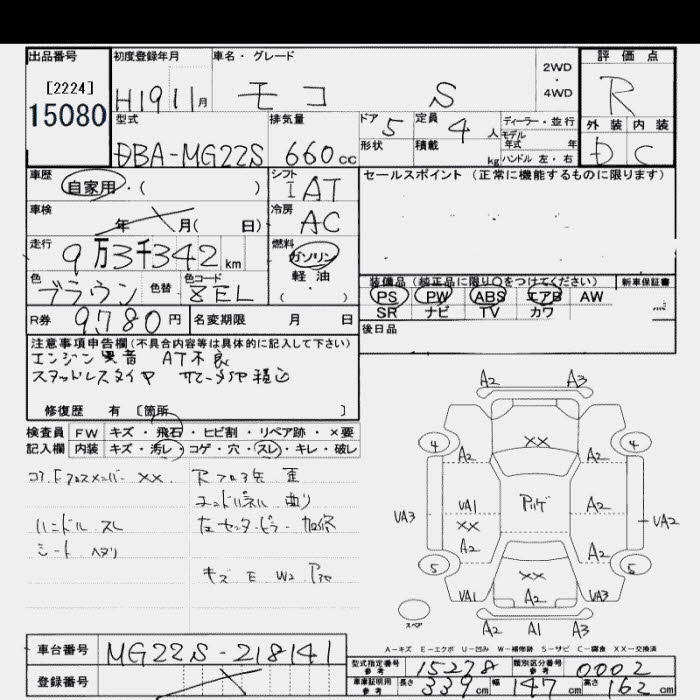 出品番号
[2224]
15080
初度登録年月
H19 11月
車名・グレード
モコ S
2WD
・
4WD
評価点
R
外装 内装
D C
型式
DBA-MG22S
排気量
660cc
ドア
5
形状
定員
4人
積載
kg
ディーラー・並行
モデル
年式 年
ハンドル 左・右
車歴
自家用・( )
シフト
IAT
セールスポイント(正常に機能するものに限ります)
車検
年 月( 日)
冷房
AC
走行
9万3千342km
燃料
ガソリン
軽・油
( ・ )
色
ブラウン
色替
色コード
ZEL
装備品(純正品に限り○をつけてください)
新車保証書
PS PW ABS エアB AW
SR ナビ TV カワ
R券 9,780円
名変期限 月 日
後日品
注意事項申告欄(不具合内容等は具体的に記入して下さい)
エンジン異音 AT不良
スタッドレスタイヤ
修復歴 有 [箇所 ]
検査員 FW キズ・飛石・ヒビ割・リペア跡・×要
記入欄 内装 キズ・汚レ・コゲ・穴・スレ・キレ・破レ
コアF クロスメンバー ××
Rフロア左 歪
エンドパネル 曲り
ハンドル スレ
左センターピラー 加修
シート ヘタリ
キズ E W2
A2 A3
4 ×× 4
A2 A2
UA3 UA1 A2 UA2
××
A2 A2
5 ×× 5
UA1 A2 UA3
スペア
A2 A1 A3
A-キズ E-エクボ U-凹み W-補修跡 S-サビ C-腐食 XX-交換済
車台番号 MG22S-218141
登録番号
型式指定番号
参考
15278
類別区分番号
参考
0002
車庫証明用
参考
長さ 339cm 幅 147cm 高さ 162cm